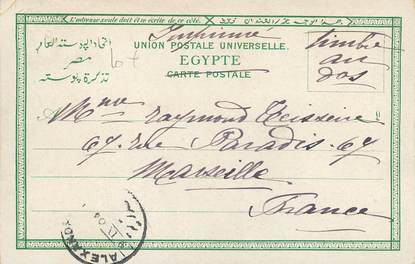 L'adresse seule doit être écrite de ce côté.
Imprimé
اتحاد البوسته العام
مصر
تذكرة بوسته
UNION POSTALE UNIVERSELLE.
EGYPTE
CARTE POSTALE
Timbre
au
dos
107
Mme Raymond Teisseire
67. rue Paradis. 67
Marseille
France
ALEXAND